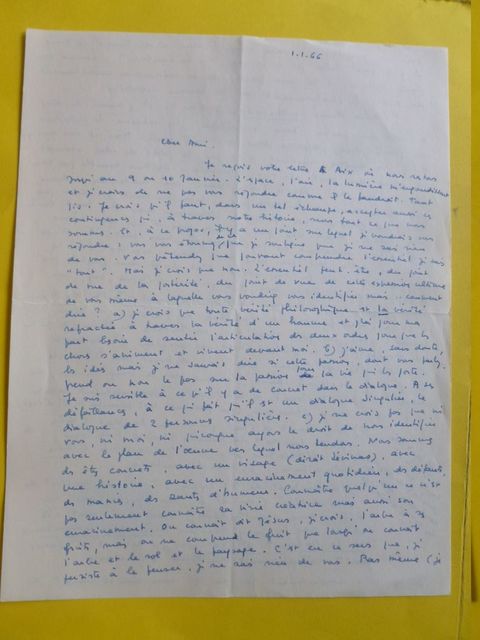 1.1.66
Cher Ami.
Je reçois votre lettre à Aix où nous restons
jusqu'au 9 ou 10 Janvier. L'espace, l'air, la lumière m'engourdissent
et je crois de ne pas vous répondre comme il le faudrait. Tant
pis. Je crois qu'il faut, dans un tel échange, accepter aussi les
contingences qui, à travers notre histoire, nous font ce que nous
sommes. Et, à ce propos, il y a un point sur lequel je voudrais vous
répondre : vous vous étonnez que je souligne que je ne sais rien
de vous. N'ai prétendez que pouvant comprendre l'essentiel je sais
"tout". Mais je crois que non. L'essentiel peut-être, du point
de vue de la postérité, du point de vue de cette expression ultime
de vous même à laquelle vous voudriez vous identifier mais .. comment
dire ? a) je crois que toute vérité philosophique est la vérité
réfractée à travers la vérité d'un homme et j'ai pour ma
part besoin de sentir l'articulation des deux ordres pour que les
choses s'animent et vivent devant moi. b) j'aime, sans doute,
les idées mais je ne saurais dire si cette passion, dont vous parlez,
prend ou non le pas sur la passion pour la vie qui les porte.
Je suis sensible à ce qu'il y a de concret dans le dialogue. A ses
défaillances, à ce qui fait qu'il est un dialogue singulier, le
dialogue de 2 personnes singulières. c) je ne crois pas que ni
vous, ni moi, ni quiconque ayons le droit de nous identifier
avec le plan de l'œuvre vers lequel nous tendons. Nous sommes
des êtres concrets, avec un visage (dirait Lévinas), avec
une histoire, avec un enracinement quotidien, des défauts,
des manies, des sautes d'humeur. Connaître quelqu'un ce n'est
pas seulement connaître sa visée créatrice mais aussi son
enracinement. On connaît dit Jésus, je crois, l'arbre à ses
fruits, mais on ne comprend le fruit que lorsqu'on connaît
l'arbre et le sol et le paysage. C'est en ce sens que, je
persiste à le penser, je ne sais rien de vous. Pas même (je